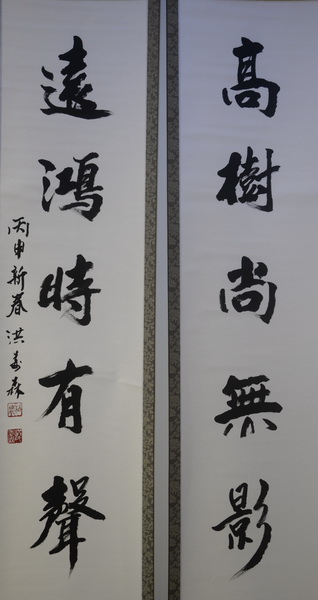 高樹尚無影
遠鴻時有聲
丙申新春 洪壽森